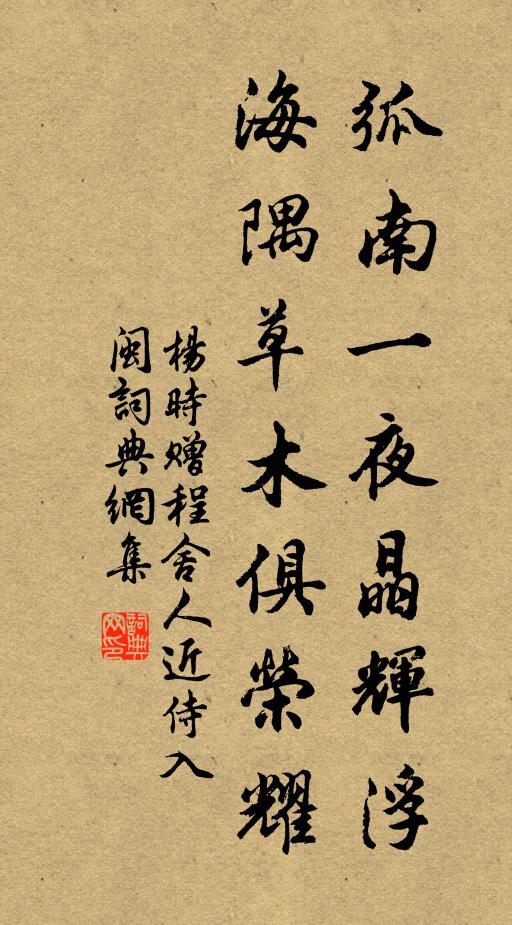 孤南一夜晶輝浮
海隅草木俱榮耀
楊時贈程舍人近侍入
閩詞典網集
詞典網印